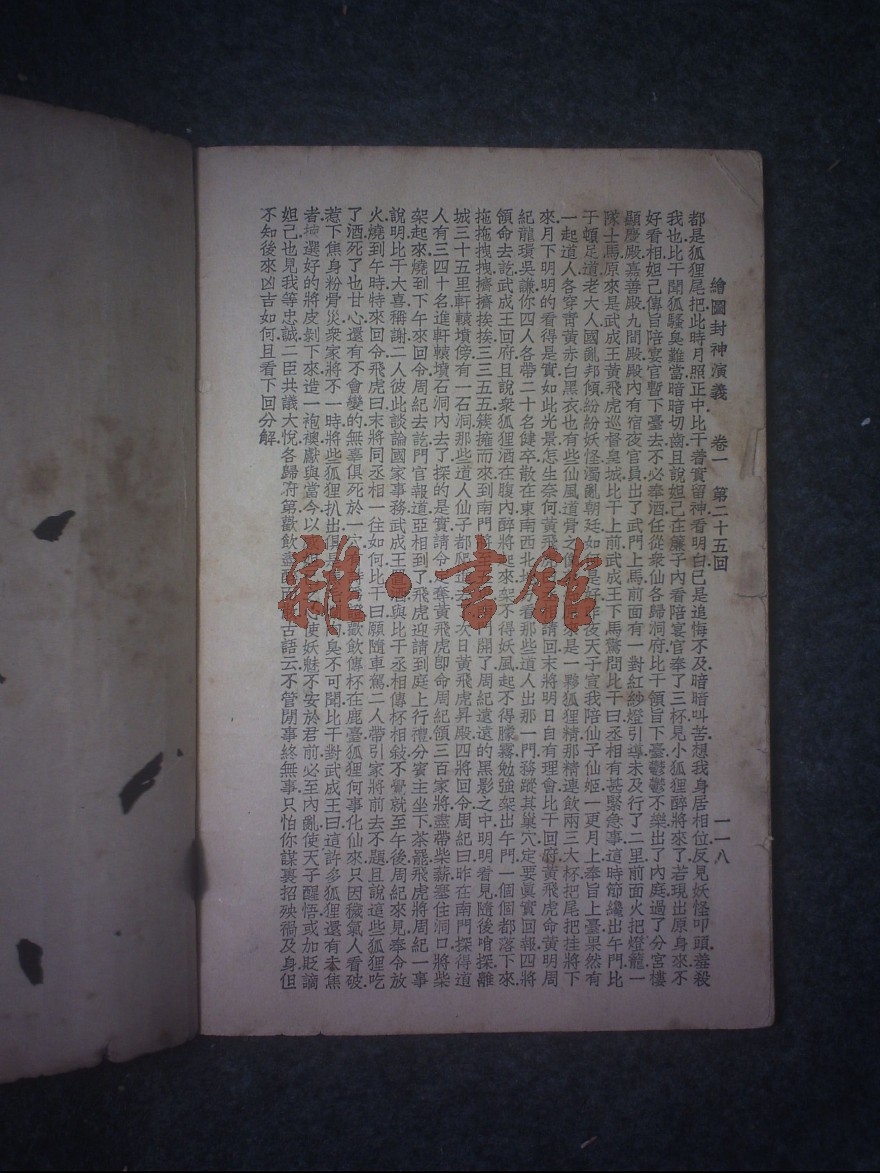 繪圖封神演義 卷一 第二十五回 一一八
都是狐狸尾把此時月照正中比干着實留神看明白已是追悔不及暗暗叫苦想我身居相位反見妖怪叩頭羞殺
我也比干聞狐騷臭難當暗暗切齒且說妲己在簾子內看陪宴官奉了三杯見小狐狸醉將來了若現出原身來不
好看相妲己傳旨陪宴官暫下臺去不必奉酒任從衆仙各歸洞府比干領旨下臺鬱鬱不樂出了內庭過了分宮樓
顯慶殿嘉善殿九間殿殿內有宿夜官員出了武門上馬前面有一對紅紗燈引導未及行了二里前面火把燈籠一
隊士馬原來是武成王黃飛虎巡督皇城比干上前武成王下馬驚問比干曰丞相有甚緊急事這時節纔出午門比
干頓足道老大人國亂邦傾紛紛妖怪濁亂朝廷如何是好昨夜天子宣我陪仙子仙姬一更月上奉旨上臺果然有
一起道人各穿青黃赤白黑衣也有些仙風道骨之像 來是一夥狐狸精那精連飲兩三大杯把尾把挂將下
來月下明明的看得是實如此光景怎生奈何黃飛虎 請回末將明日自有理會比干回府黃飛虎命黃明周
紀龍環吳謙你四人各帶二十名健卒散在東南西北 看那些道人出那一門務蹤其巢穴定要眞實回報四將
領命去訖武成王回府且說衆狐狸酒在腹內醉將起來架不得妖風起不得朦霧勉強架出午門一個個都落下來
拖拖拽拽擠擠挨挨三三五五簇擁而來到南門將 門開了周紀遠遠的黑影之中明明看見隨後哨探離
城三十五里軒轅墳傍有一石洞那些道人仙子都爬進去了次日黃飛虎昇殿四將回令周紀曰昨在南門探得道
人有三四十名進軒轅墳石洞內去了探的是實請令 奪黃飛虎卽命周紀領三百家將盡帶柴薪壅住洞口將柴
架起來燒到下午來回令周紀去訖門官報道亞相到了飛虎迎請到庭上行禮分賓主坐下茶罷飛虎將周紀一事
說明比干大喜稱謝二人彼此談論國家事務武成王置酒與比干丞相傳杯相敍不覺就至午後周紀來見奉令放
火燒到午時特來回令飛虎曰末將同丞相一往如何比干曰願隨車駕二人帶引家將前去不題且說這些狐狸吃
了酒死了也甘心還有不會變的無辜俱死於一穴 歡飲傳杯在鹿臺狐狸何事化仙來只因穢氣人看破
惹下焦身粉骨災衆家將不一時將些狐狸扒出俱 臭不可聞比干對武成王曰這許多狐狸還有未焦
者揀選好的將皮剝下來造一袍襖獻與當今以 使妖魅不安於君前必至內亂使天子醒悟或加貶謫
妲己也見我等忠誠二臣共議大悅各歸府第歡飲盡 古語云不管閒事終無事只怕你謀裏招殃禍及身但
不知後來凶吉如何且看下回分解
雜·書館